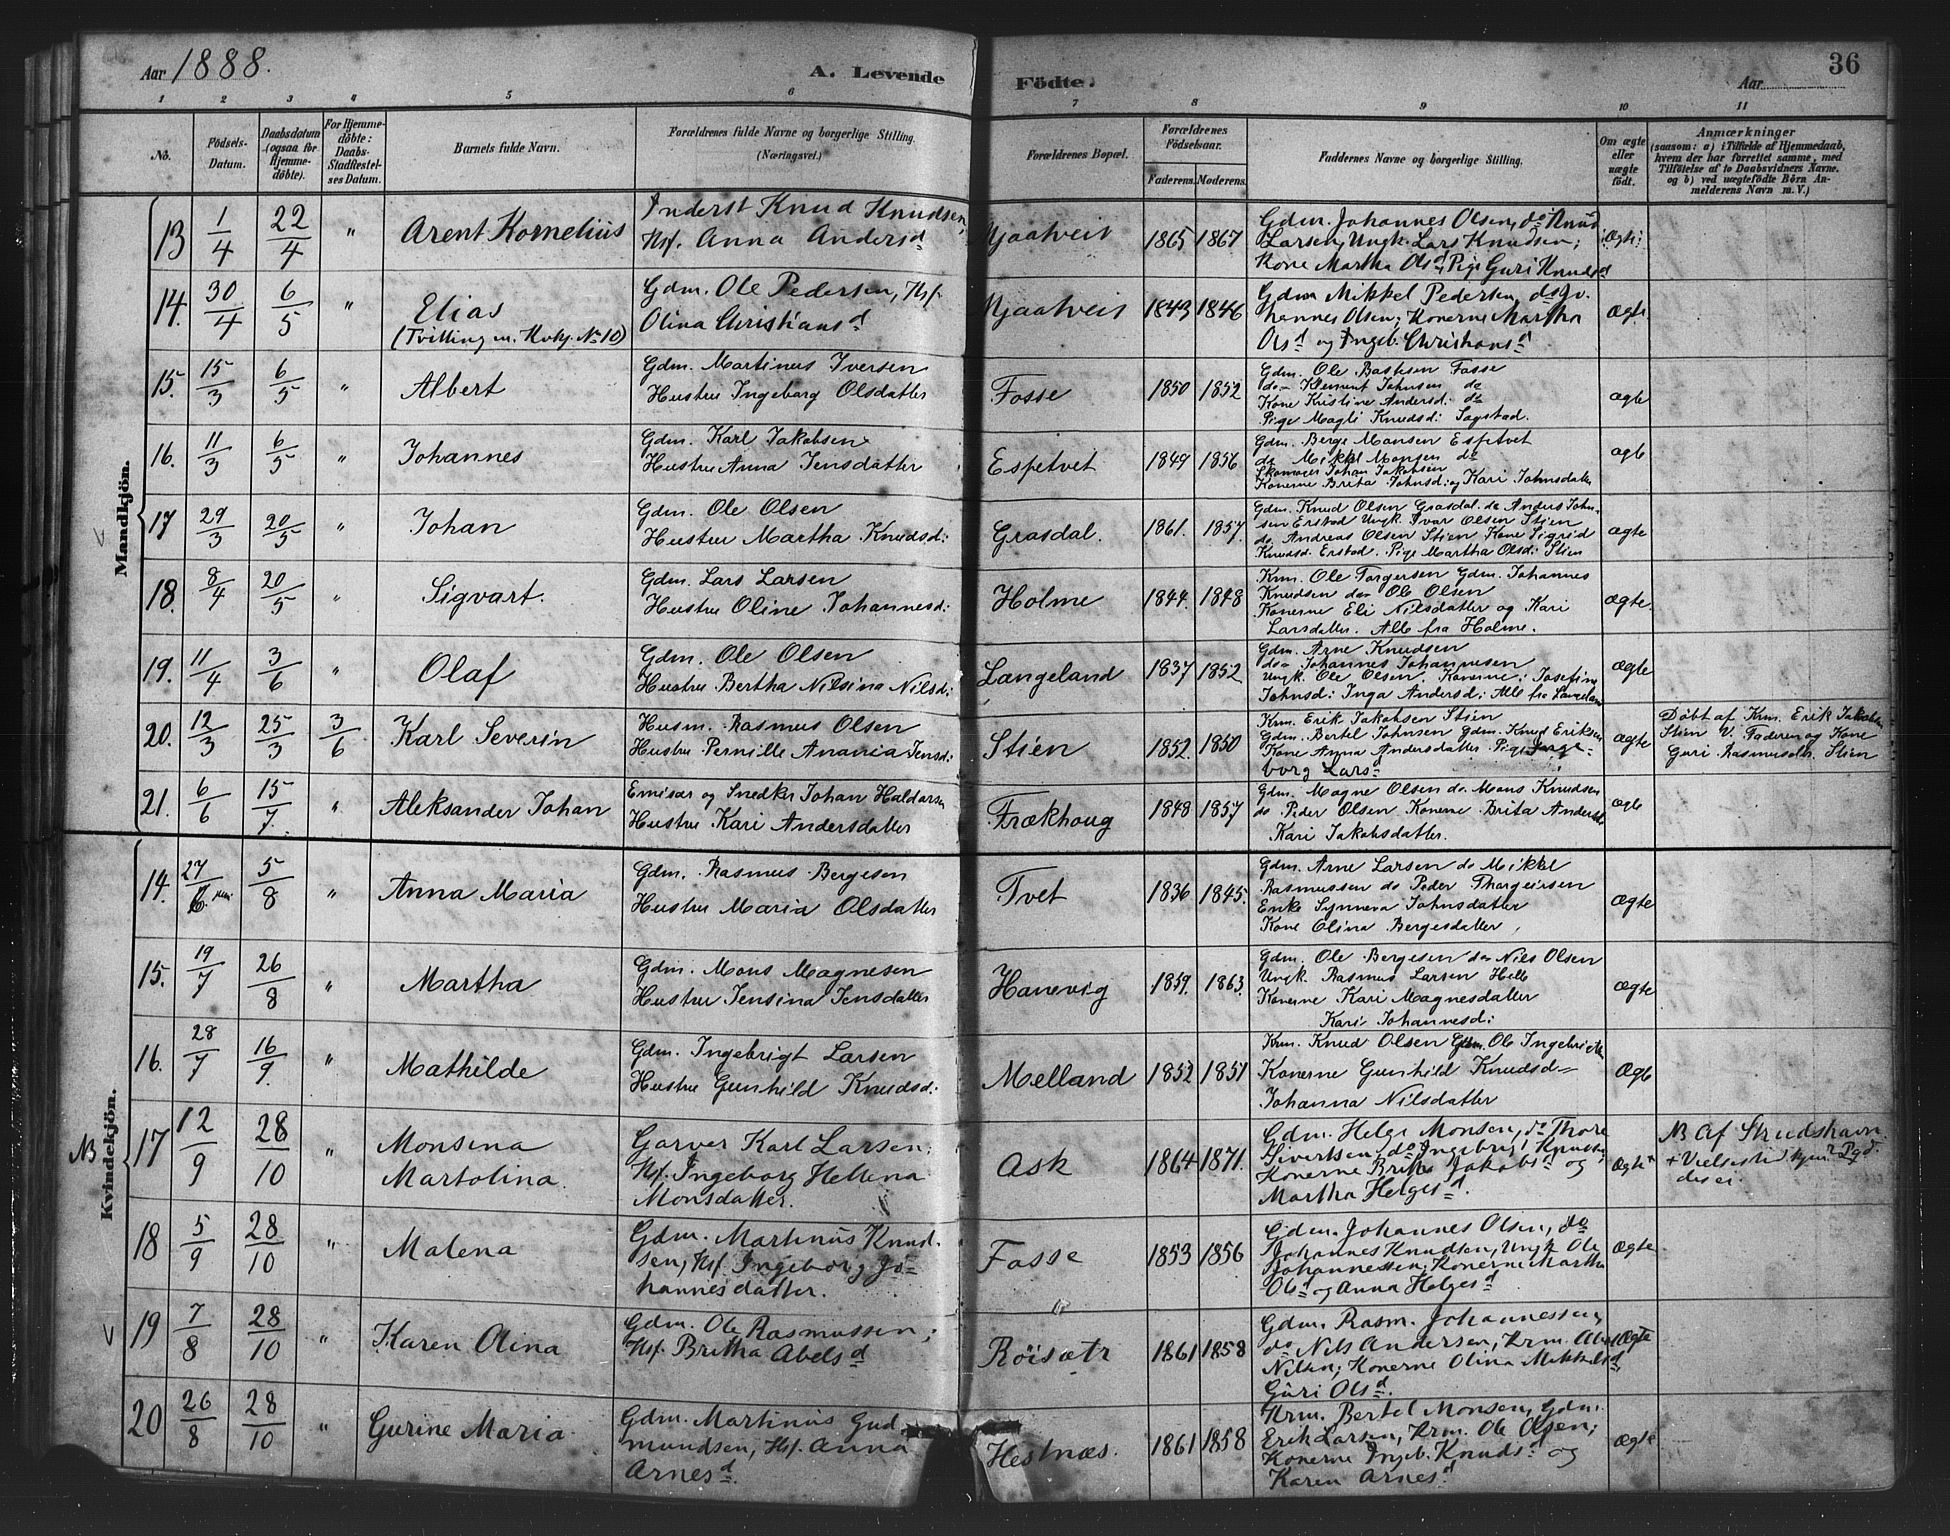 Aar 1888.
A. Levende Födte.
Aar
36
1 2 3 4 5 6 7 8 9 10 11
No.
Födsels-
Datum.
Daabsdatum
(ogsaa for
Hjemme-
döbte).
For Hjemme-
döbte:
Daabs-
Stadfæstel-
ses Datum.
Barnets fulde Navn.
Forældrenes fulde Navne og borgerlige Stilling.
(Næringsvei.)
Forældrenes Bopæl.
Forældrenes
Födselsaar.
Faderens. Moderens.
Faddernes Navne og borgerlige Stilling.
Om ægte
eller
uægte
födt.
Anmærkninger
(saasom: a) i Tilfælde af Hjemmedaab,
hvem der har forrettet samme, med
Tilföielse af to Daabsvidners Navne.
og b) ved uægtefödte Börn An-
melderens Navn m. V.)
Mandkjön.
13 1/4 22/4 " Arent Kornelius
Inderst Knud Knudsen,
Hsf. Anna Andersd
Mjaatveit 1865 1867
Gdm. Johannes Olsen, do Knud
Larsen, Ungk. Lars Knudsen;
Kone Martha Olsd, Pige Guri Knudsd
Ægte
14. 30/4 6/5 " Elias
(Tvilling m. Kvkj. No 10)
Gdm. Ole Pedersen, Hsf.
Olina Christiansd
Mjaatveit 1843 1846
Gdm Mikkel Pedersen, do Jo-
hannes Olsen; Konerne Martha
Olsd og Ingeb. Christiansd
Ægte
15. 15/3 6/5 " Albert
Gdm. Martinus Iversen
Hustru Ingeborg Olsdatter
Fosse 1850 1852
Gdm. Ole Bastesen Fosse
do Klement Johnsen do
Kone Kristine Andersd: do
Pige Magli Knudsd: Sagstad.
ægte
16. 11/3 6/5 " Johannes
Gdm. Karl Jakobsen
Hustru Anna Jensdatter
Espetvet 1849 1856
Gdm. Berge Monsen Espetvet
do Mikkel Monsen do
Skomager Johan Jakobsen
Konerne Brita Johnsd: og Kari Johnsdatter
ægte
17 29/3 20/5 " Johan
Gdm. Ole Olsen
Hustru Martha Knudsd:
Grasdal. 1861. 1857.
Gdm. Knud Olsen Grasdal. do Anders John-
sen Erstad Ungk. Ivar Olsen Stien
do Andreas Olsen Stien Kone Sigrid
Knudsd. Erstad. Pige Martha Olsd: Stien
ægte
18. 8/4 20/5 " Sigvart.
Gdm. Lars Larsen
Hustru Oline Johannesd:
Holme 1844. 1848
Krm. Ole Torgersen Gdm. Johannes
Knudsen do Ole Olsen
Konerne Eli Nilsdatter og Kari
Larsdatter. Alle fra Holme.
ægte.
19. 11/4 3/6 " Olaf
Gdm. Ole Olsen
Hustru Bertha Nilsina Nilsd:
Langeland 1837 1852.
Gdm. Arne Knudsen
do Johannes Johannesen
Ungk. Ole Olsen. Konerne: Josefine
Johnsd: Inga Andersd: Alle fra Langeland
ægte
20. 12/3 25/3 3/6 Karl Severin
Husm. Rasmus Olsen
Hustru Pernille Anania Jensd:
Stien 1852. 1850
Krm. Erik Jakobsen Stien
Gdm. Bertel Johnsen Gdm. Knud Eriksen
Kone Anna Andersdatter Pige Inge-
borg Larsd
ægte
Döbt af Krm. Erik Jakobsen
Stien V. Faderen og Kone
Guri Rasmusdtr Stien
21. 6/6 15/7. " Aleksander Johan
Emisær og Snedker Johan Haldorsen
Hustru Kari Andersdatter
Frækhoug 1848 1857
Gdm. Magne Olsen do Mons Knudsen
do Peder Olsen Konerne Brita Andersd:
Kari Jakobsdatter.
ægte
Kvindekjön.
14. 27/6 5/8 " Anna Maria
Gdm. Rasmus Bergesen
Hustru Maria Olsdatter
Tvet 1836 1845.
Gdm. Arne Larsen do Mikkel
Rasmussen do Peder Thorgeirsen
Enke Synneva Johnsdatter
Kone Olina Bergesdatter
Ægte
15. 19/7 26/8 " Martha
Gdm. Mons Magnesen
Hustru Jensina Jensdatter
Hanevig 1859. 1863.
Gdm. Ole Bergesen do Nils Olsen
Ungk. Rasmus Larsen Helle
Konerne Kari Magnesdatter
Kari Johannesd:
ægte
16. 28/7 16/9. " Mathilde
Gdm. Ingebrigt Larsen
Hustru Gunhild Knudsd:
Melland 1852 1851
Krm. Knud Olsen Gdm. Ole Ingebrigtsen
Konerne Gunhild Knudsd
Johanna Nilsdatter
Ægte
NB 17 12/9 28/10 " Monsina
Martolina.
Garver Karl Larsen;
Hsf. Ingeborg Hellena
Monsdatter.
Ask 1864 1871.
Gdm. Helge Monsen, do Thore
Sivertsen, do Ingebrigt Knudsen
Konerne Britha Jakobsd og
Martha Helgesd.
Ægte
NB Af Strudshavn
18 5/9 28/10 " Malena
Gdm. Martinus Knud-
sen, Hsf. Ingeborg Jo-
hannesdatter.
Fosse 1853 1856
Gdm. Johannes Olsen, do
Johannes Knudsen, Ungk Ole
Johannessen; Konerne Martha
Olsd og Anna Helgesd
Ægte
19 7/8 28/10 " Karen Olina
Gdm. Ole Rasmussen;
Hsf. Britha Abelsd
Röisætr 1861 1858
Gdm. Rasm. Johannessen,
do Nils Andersen, Krm. Abel
Nilsen; Konerne Olina Mikkelsd,
Guri Olsd.
Ægte
20 26/8 28/10 " Gurine Maria
Gdm. Martinus Gud-
mundsen, Hsf. Anna
Arnesd.
Hestnæs. 1861 1858
Krm. Bertel Monsen, Gdm.
Erik Larsen, Krm. Ole Olsen;
Konerne Ingeb. Knudsd og
Karen Arnesd
Ægte